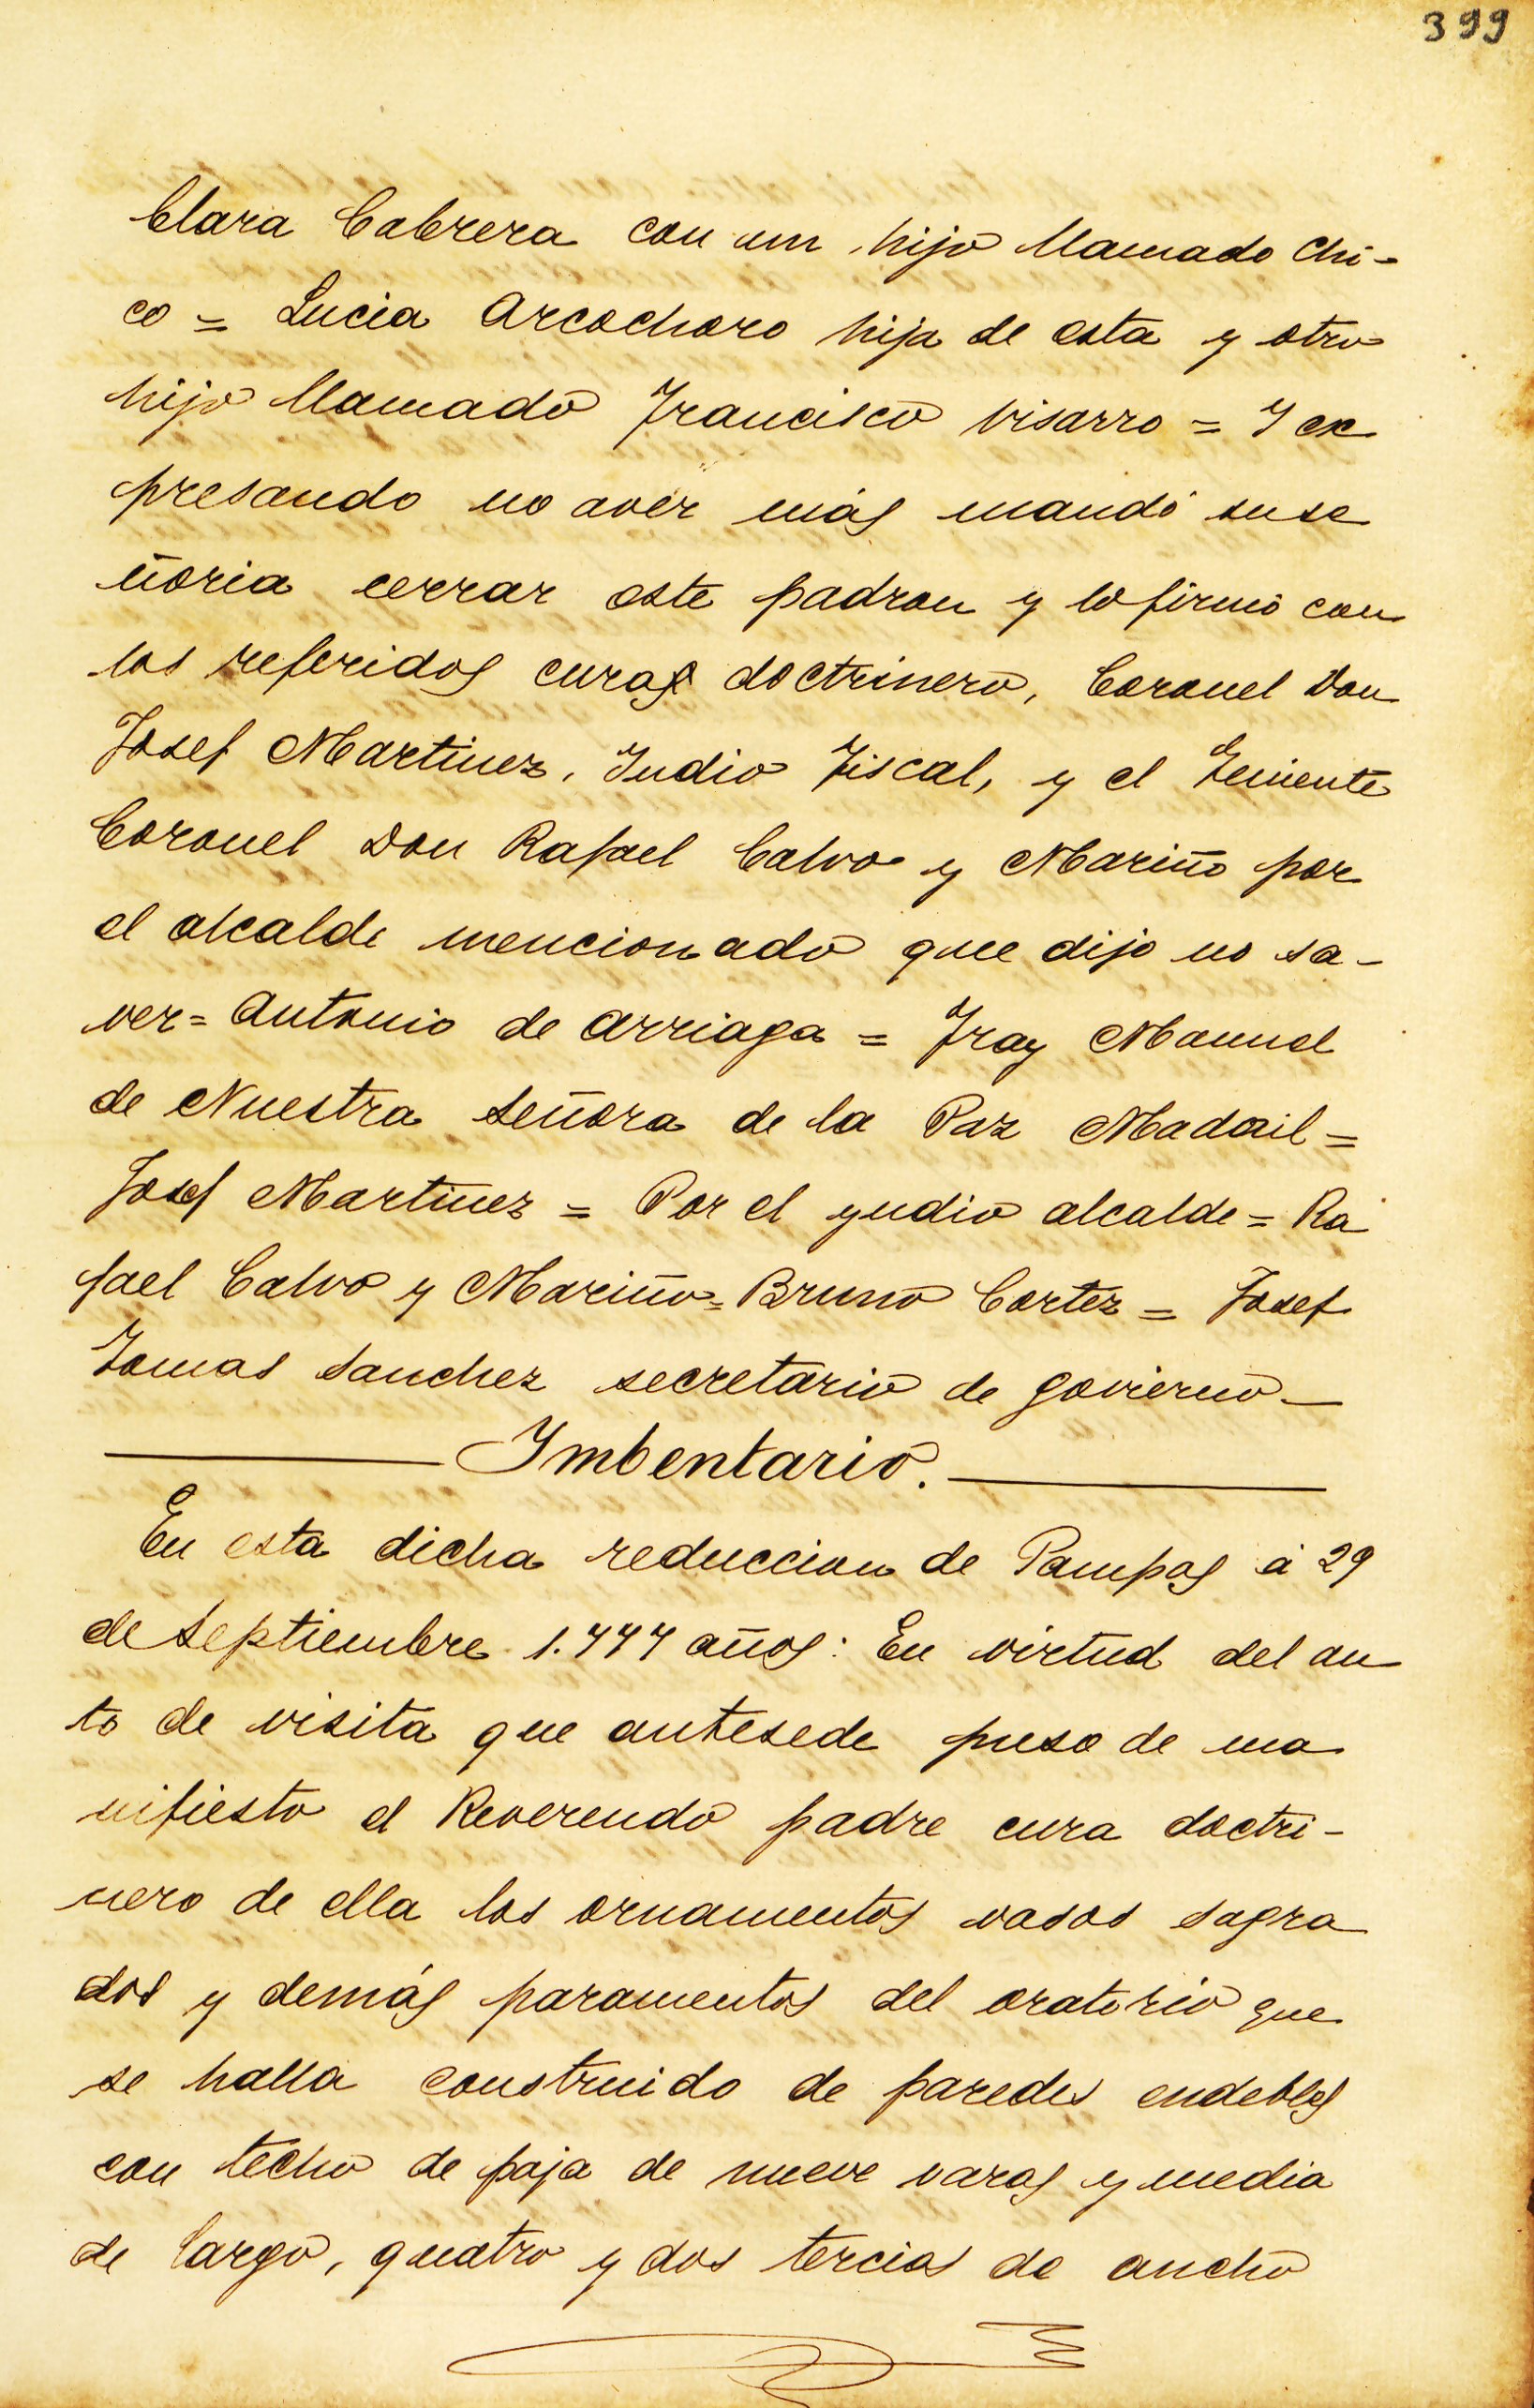 399
Clara Cabrera con un hijo llamado Chi-
co = Lucia Arcochoro hija de esta y otro
hijo llamado Francisco Visarro = Y ex
presando no aver más mandó suse
ñoria cerrar este padron y lo firmó con
los referidos curas doctrinero, Coronel Don
Josef Martinez, Indio Fiscal, y el Teniente
Coronel Don Rafael Calvo y Mariño por
el alcalde mencionado que dijo no sa-
ver = Antonio de Arriaga = Fray Manuel
de Nuestra Señora de la Paz Madail =
Josef Martinez = Por el yndio alcalde = Ra
fael Calvo y Mariño = Bruno Cortez = Josef
Tomas Sanchez secretario de govierno —
Imbentario.
En esta dicha reduccion de Pampas á 29
de Septiembre 1.777 años: En virtud del au
to de visita que antesede puso de ma
nifiesto el Reverendo padre cura doctri-
nero de ella los ornamentos vasos sagra
dos y demás paramentos del oratorio que
se halla construido de paredes endebles
con techo de paja de nueve varas y media
de largo, quatro y dos tercias de ancho